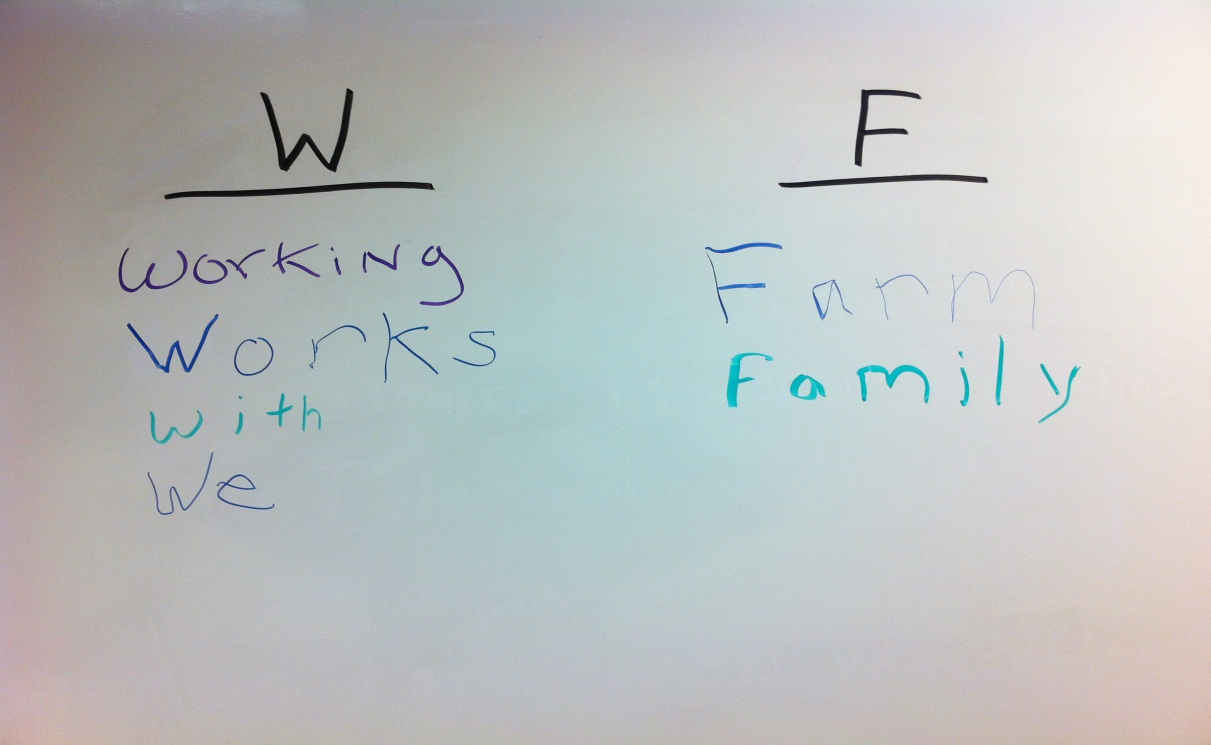 W
Working
Works
with
We
F
Farm
Family